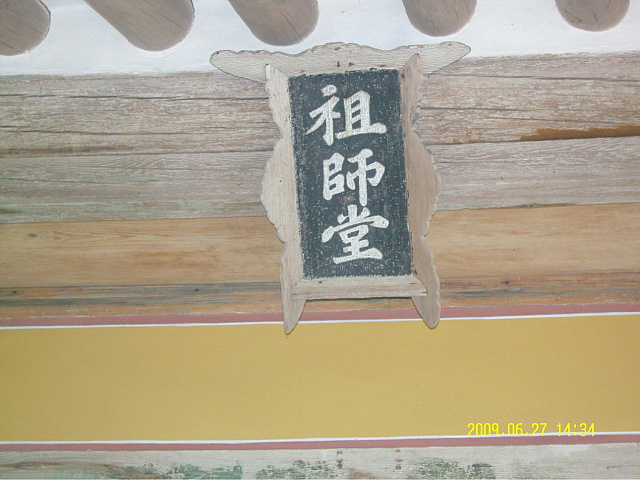 祖師堂
2009.06.27 14:34